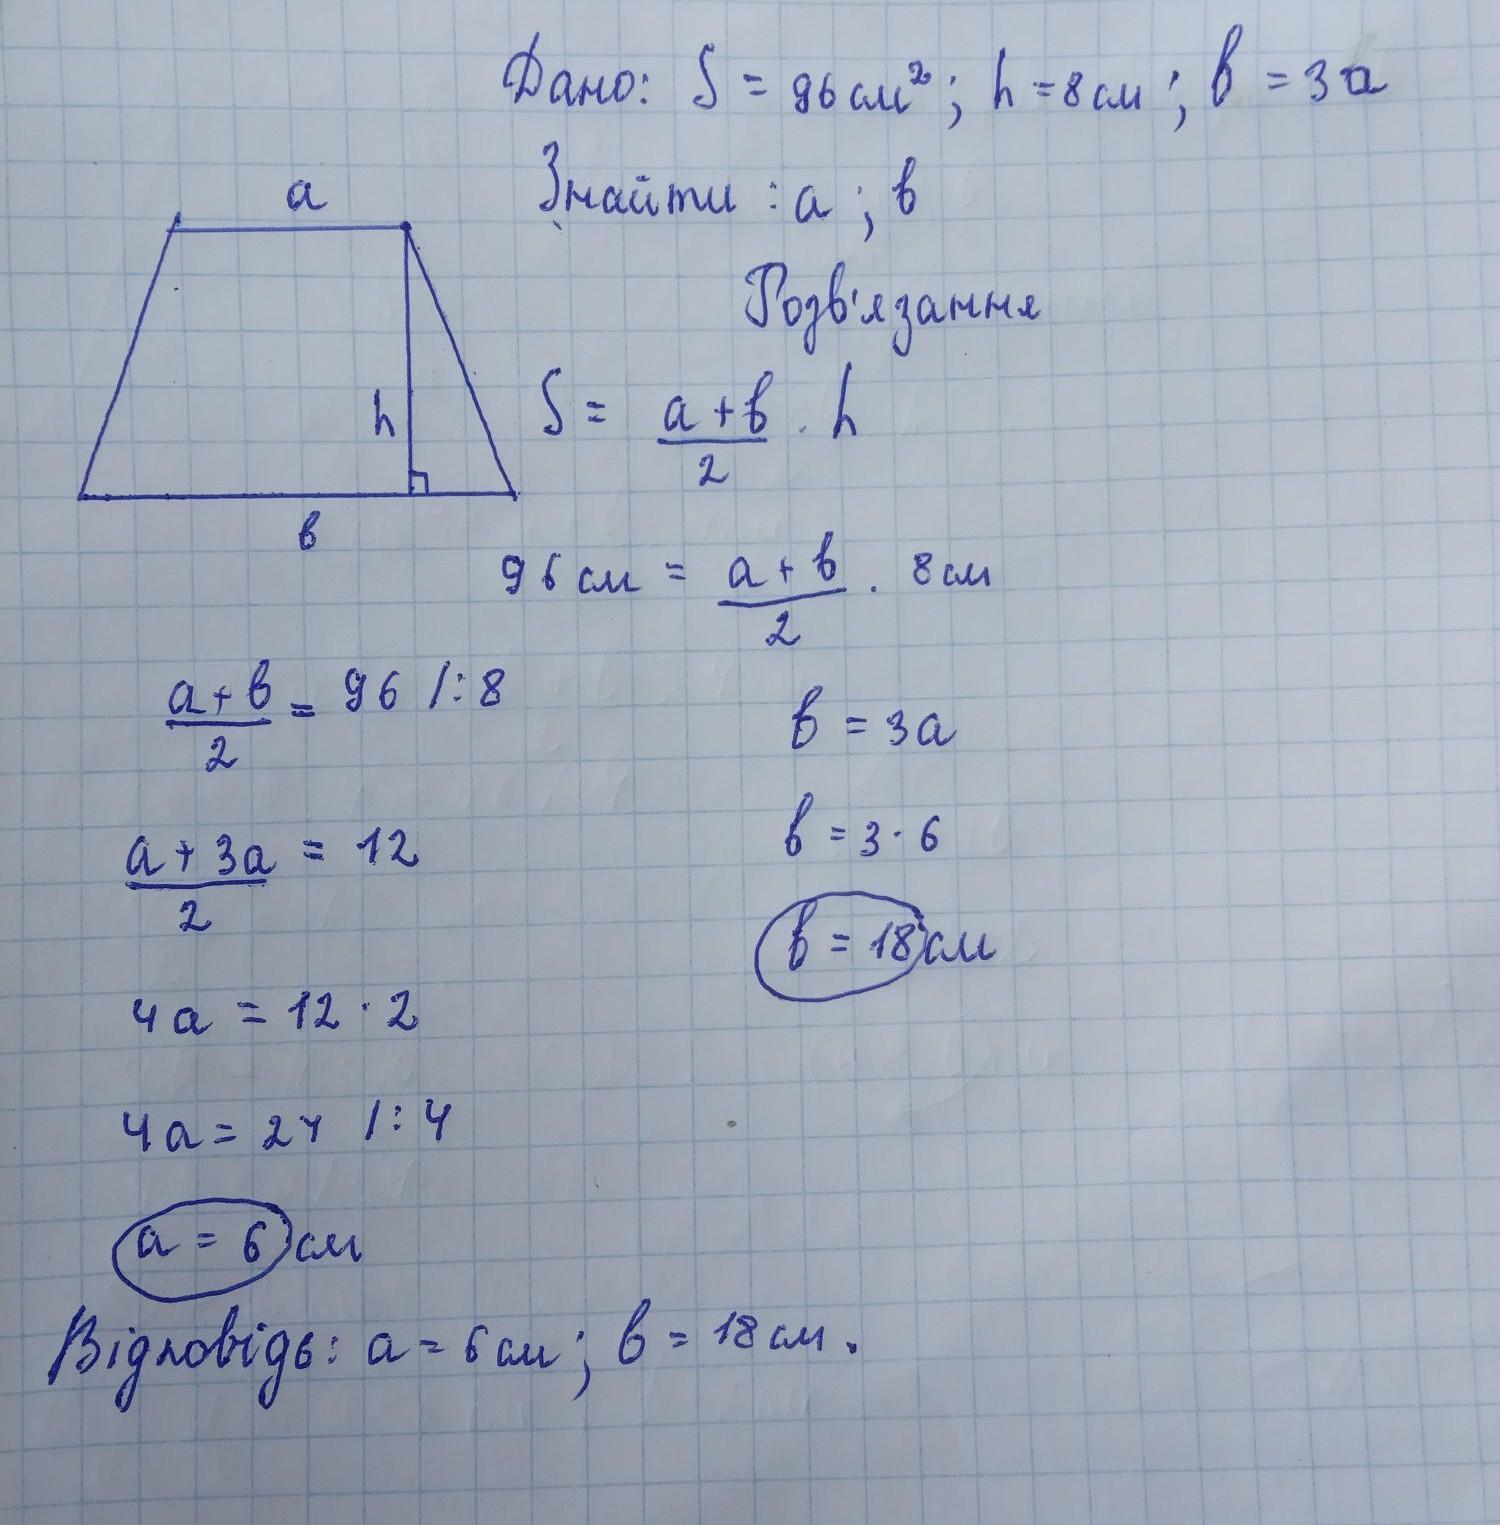 Дано: S = 96 см²; h = 8 см; в = 3а
Знайти: а; в
Розв'язання
а
h
в
S = (а + в)/2 · h
96 см = (а + в)/2 · 8 см
(а + в)/2 = 96 /: 8
(а + 3а)/2 = 12
4а = 12 · 2
4а = 24 /: 4
а = 6 см
в = 3а
в = 3 · 6
в = 18 см
Відповідь: а = 6 см; в = 18 см.